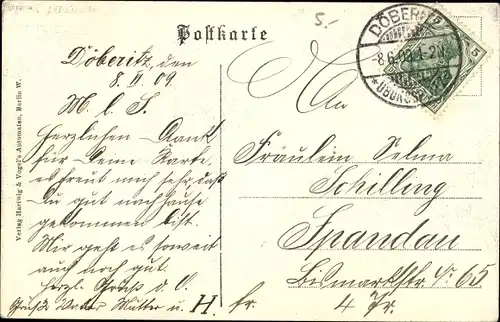 Postkarte
5.-
DÖBERITZ
-8.6.09.1-2N.
*ÜBUNGSPL
5
5
Döberitz, den
8. VI 09.
M. l. S.
Herzlichen Dank
für Deine Karte,
es freut mich sehr, daß
Du gut nach Hause
gekommen bist.
Mir geht es soweit
auch noch gut.
Herzl. Gruß d. O.
Grüße Vater Mutter u. H.
An
Fräulein Selma
Schilling
Spandau
Bismarckstr. No. 65
fr. 4 Tr.
Verlag Hartwig & Vogel's Automaten, Berlin W.